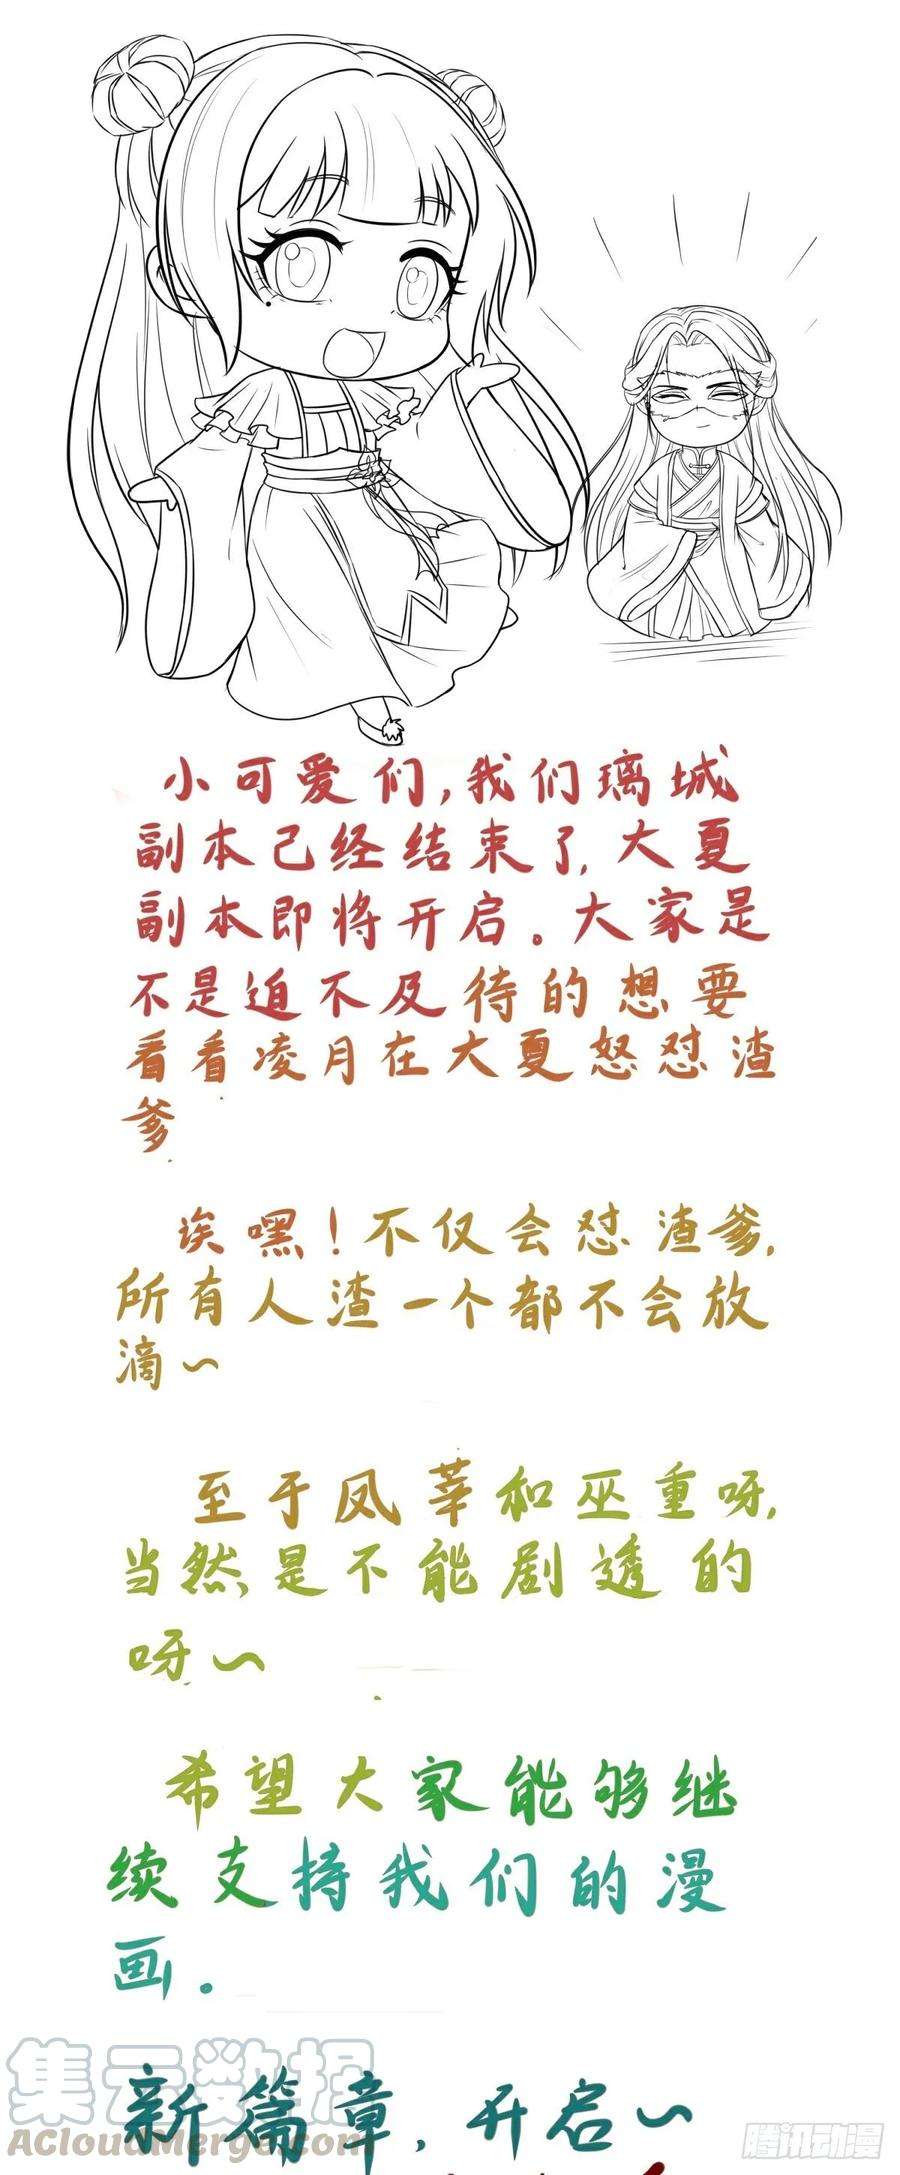 小可爱们,我们璃城
副本已经结束了,大夏
副本即将开启。大家是
不是迫不及待的想要
看看凌月在大夏怒怼渣
爹
诶嘿!不仅会怼渣爹,
所有人渣一个都不会放
滴~
至于凤莘和巫重呀,
当然,是不能剧透的
呀~
希望大家能够继
续支持我们的漫
画。
集云数据
ACloudMerge.com
新篇章,开启~
腾讯动漫